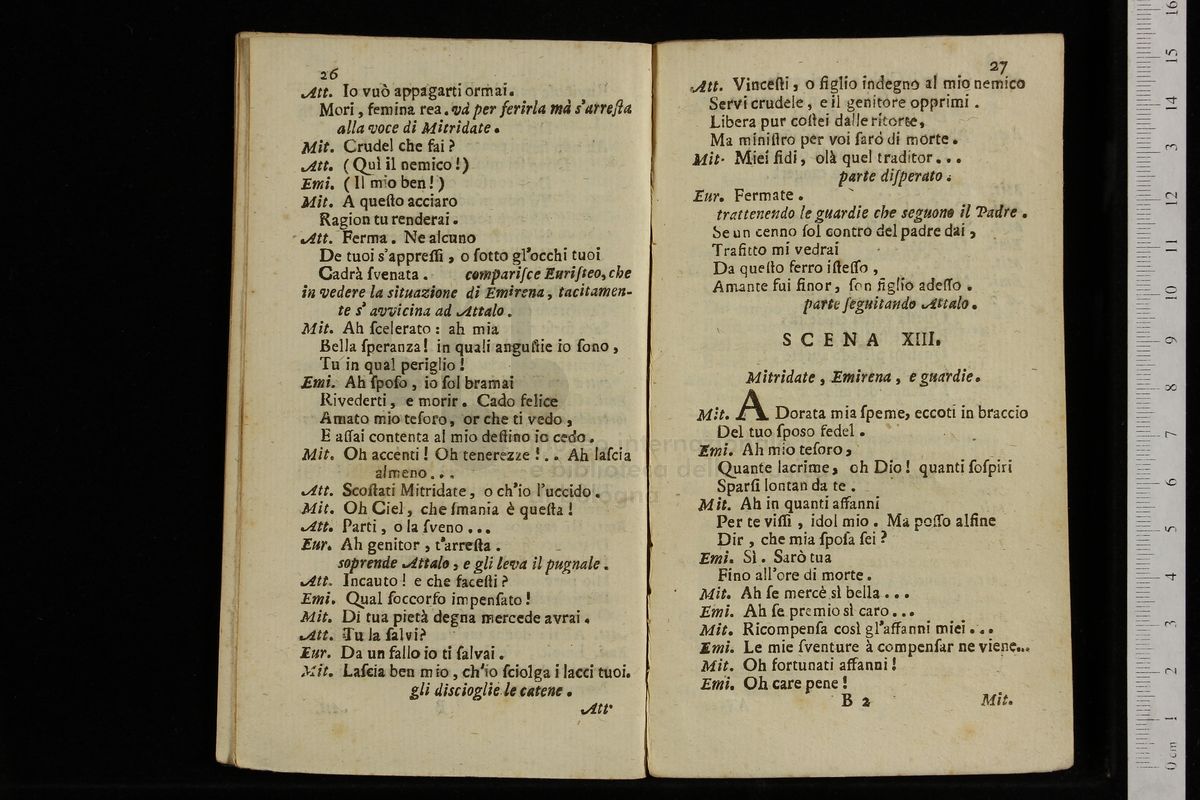 26
Att. Io vuò appagarti ormai.
Mori, femina rea. và per ferirla mà s'arreſta
alla voce di Mitridate.
Mit. Crudel che fai?
Att. (Quì il nemico!)
Emi. (Il mio ben!)
Mit. A queſto acciaro
Ragion tu renderai.
Att. Ferma. Ne alcuno
De tuoi s'appreſſi, o ſotto gl'occhi tuoi
Cadrà ſvenata. compariſce Euriſteo, che
in vedere la situazione di Emirena, tacitamen-
te s' avvicina ad Attalo.
Mit. Ah ſcelerato: ah mia
Bella ſperanza! in quali anguſtie io ſono,
Tu in qual periglio!
Emi. Ah ſpoſo, io ſol bramai
Rivederti, e morir. Cado felice
Amato mio teſoro, or che ti vedo,
E aſſai contenta al mio deſtino io cedo.
Mit. Oh accenti! Oh tenerezze!.. Ah laſcia
almeno...
Att. Scoſtati Mitridate, o ch'io l'uccido.
Mit. Oh Ciel, che ſmania è queſta!
Att. Parti, o la ſveno...
Eur. Ah genitor, t'arreſta.
soprende Attalo, e gli leva il pugnale.
Att. Incauto! e che faceſti?
Emi. Qual ſoccorſo impenſato!
Mit. Di tua pietà degna mercede avrai.
Att. Tu la ſalvi?
Eur. Da un fallo io ti ſalvai.
Mit. Laſcia ben mio, ch'io ſciolga i lacci tuoi.
gli discioglie le catene.
Att
27
Att. Vinceſti, o figlio indegno al mio nemico
Servi crudele, e il genitore opprimi.
Libera pur coſtei dalle ritorte,
Ma miniſtro per voi ſarò di morte.
Mit. Miei fidi, olà quel traditor...
parte diſperato.
Eur. Fermate.
trattenendo le guardie che seguono il Padre.
Se un cenno ſol contro del padre dai,
Trafitto mi vedrai
Da queſto ferro iſteſſo,
Amante fui finor, ſon figlio adeſſo.
parte ſeguitando Attalo.
SCENA XIII.
Mitridate, Emirena, e guardie.
Mit. ADorata mia ſpeme, eccoti in braccio
Del tuo ſposo fedel.
Emi. Ah mio teſoro,
Quante lacrime, oh Dio! quanti ſoſpiri
Sparſi lontan da te.
Mit. Ah in quanti affanni
Per te viſſi, idol mio. Ma poſſo alfine
Dir, che mia ſpoſa ſei?
Emi. Sì. Sarò tua
Fino all'ore di morte.
Mit. Ah ſe mercè sì bella...
Emi. Ah ſe premio sì caro...
Mit. Ricompenſa così gl'affanni miei...
Emi. Le mie ſventure à compenſar ne viene...
Mit. Oh fortunati affanni!
Emi. Oh care pene!
B 2 Mit.